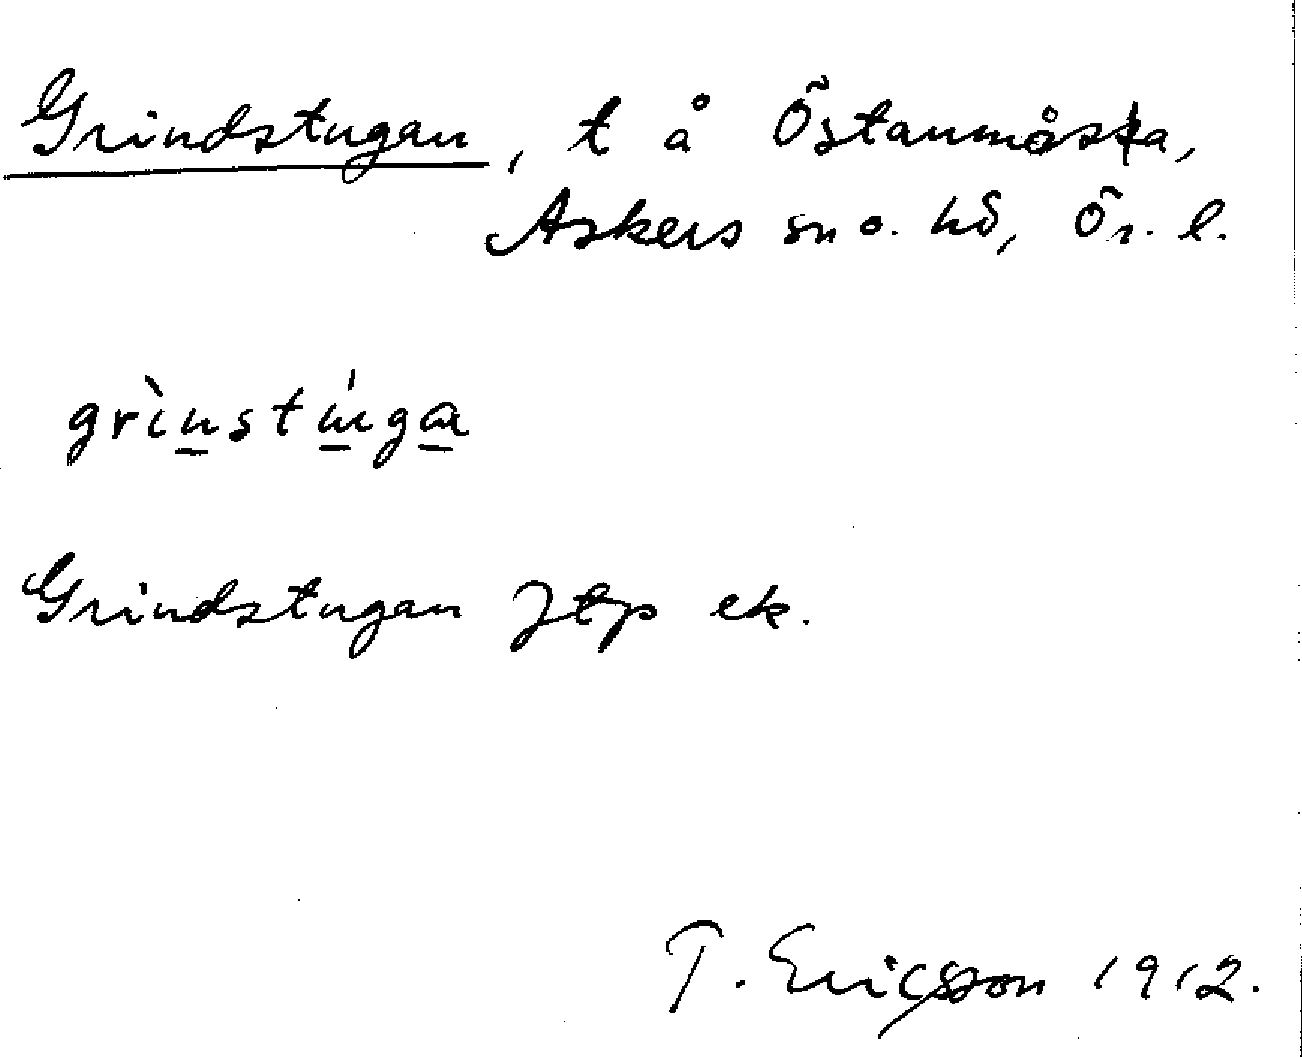 Grindstugan, t å Östanmåska,
Askers sn o. hd, Ör. l.
grìnstúga
Grindstugan Jtp ek.
T. Ericsson 1912.